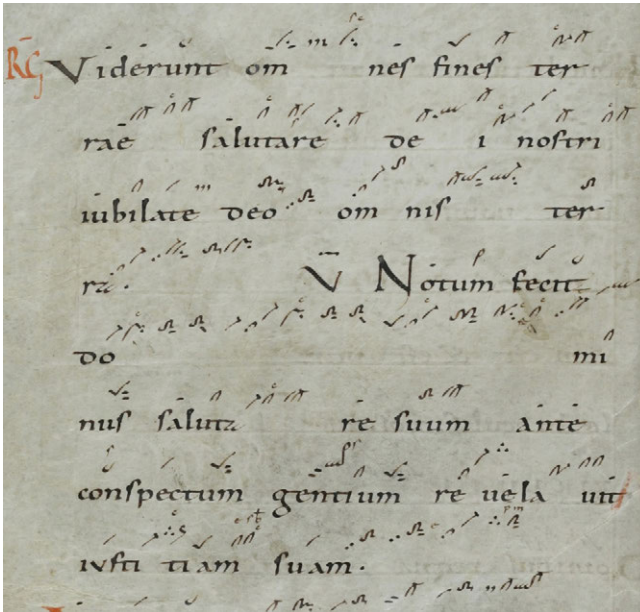 RG Viderunt om nes fines ter
rae salutare de i nostri
iubilate deo om nis ter
ra. V Notum fecit
do mi
nus saluta re suum ante
conspectum gentium re vela vit
iusti tiam suam.